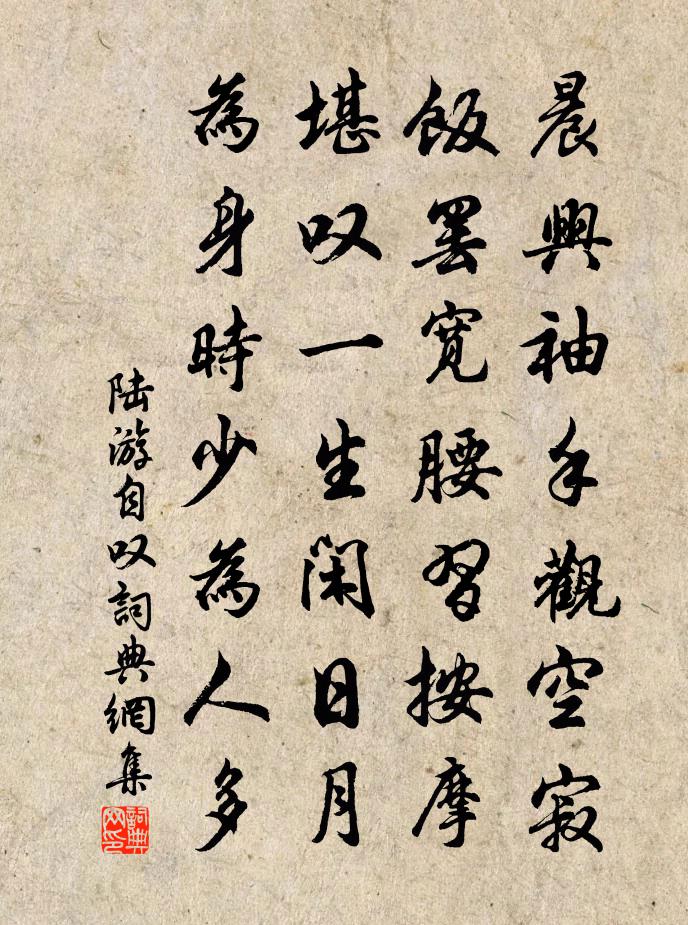 晨興袖手觀空寂
飯罷寬腰習按摩
堪叹一生閑日月
為身時少為人多
陆游自叹詞典網集
詞典网印